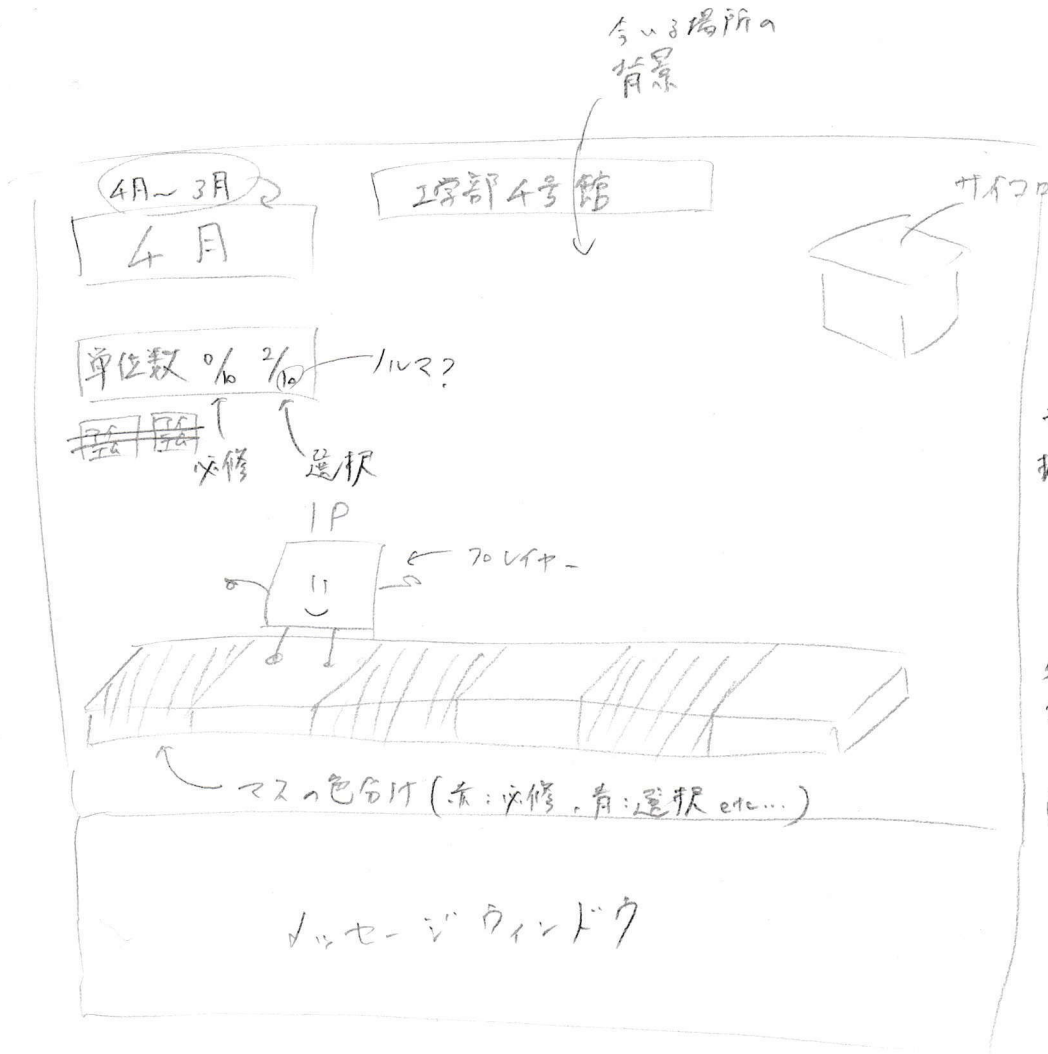 今いる場所の
背景
4月〜3月
4月
工学部4号館
サイコロ
単位数 0/10 2/10
ノルマ?
アイテム アイテム
必修
選択
1P
プレイヤー
マスの色分け(赤:必修、青:選択 etc...)
メッセージウィンドウ